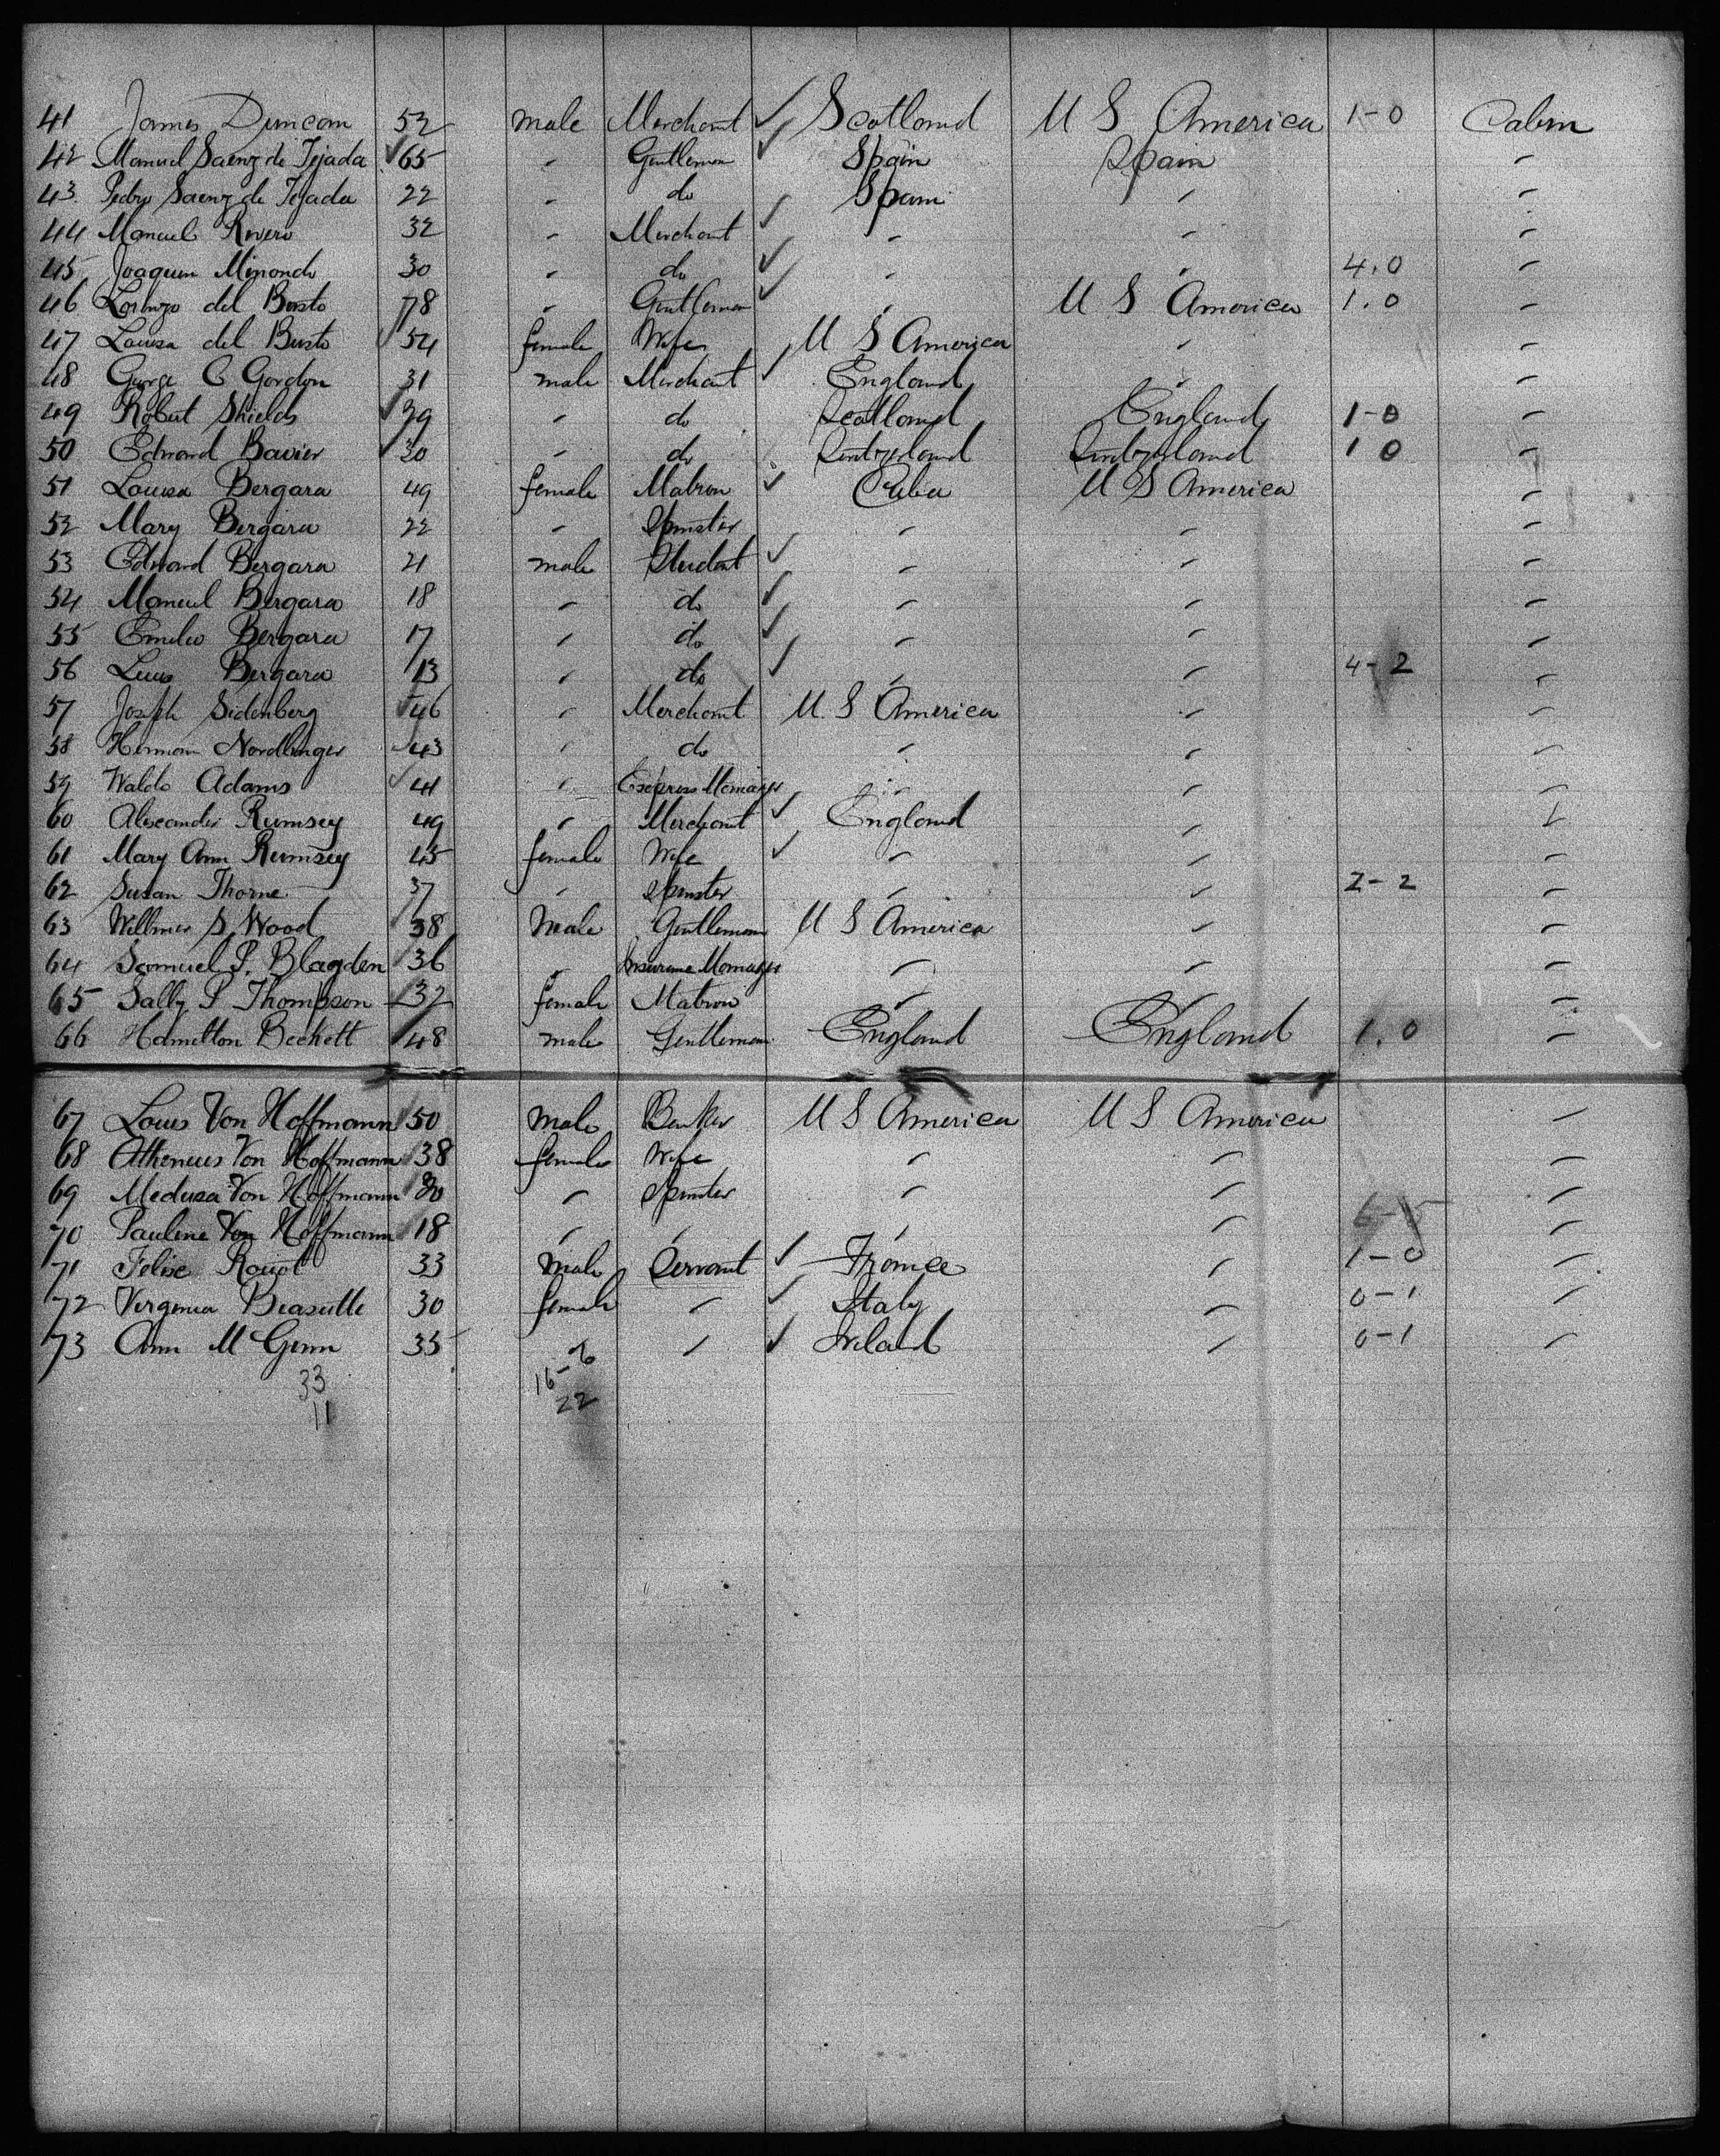 41 James Duncan 52 male Merchant ✓ Scotland U S America 1-0 Cabin
42 Manuel Saenz de Tejada ✓ 65 " Gentleman ✓ Spain Spain "
43 Pedro Saenz de Tejada 22 " do Spain " "
44 Manuel Rivero 32 " Merchant ✓ " " "
45 Joaquin Minondo 30 " do ✓ " " 4.0 "
46 Lorenzo del Busto 78 " Gentleman ✓ " U S America 1.0 "
47 Louisa del Busto ✓ 54 female Wife U S America " "
48 George C Gordon 31 male Merchant ✓ England " "
49 Robert Shields ✓ 39 " do Scotland England 1-0 "
50 Edmond Bavier ✓ 30 " do Switzerland Switzerland 1 0 "
51 Louisa Bergara 49 female Matron ✓ Cuba U S America "
52 Mary Bergara 22 " Spinster " " "
53 Edward Bergara 21 male Student ✓ " " "
54 Manuel Bergara 18 " do ✓ " " "
55 Emilio Bergara 17 " do ✓ " " "
56 Luis Bergara 13 " do ✓ " " 4-2 "
57 Joseph Sidenberg ✓ 46 " Merchant U. S America " "
58 Herman Nordlinger ✓ 43 " do " " "
59 Waldo Adams ✓ 41 " Express Manager " " "
60 Alexander Rumsey 49 " Merchant ✓ England " "
61 Mary Ann Rumsey 45 female Wife ✓ " " "
62 Susan Thorne 37 " Spinster " " 2-2 "
63 S. Wood 38 Male Gentleman U S America " "
64 Samuel P. Blagden 36 " Insurance Manager " " "
65 Sally P Thompson 32 female Matron " " "
66 Hamilton Beckett 48 male Gentleman England England 1.0 "
67 Louis Von Hoffmann 50 Male Banker U S America U S America "
68 Von Hoffmann 38 female Wife " " "
69 Medusa Von Hoffmann 20 " Spinster " " "
70 Pauline Von Hoffmann 18 " " " " "
71 Felix 33 Male Servant ✓ France " 1-0 "
72 Virginia 30 female " ✓ Italy " 0-1 "
73 Ann M Genn 35 " " ✓ Ireland " 0-1 "
33 16-
11 22